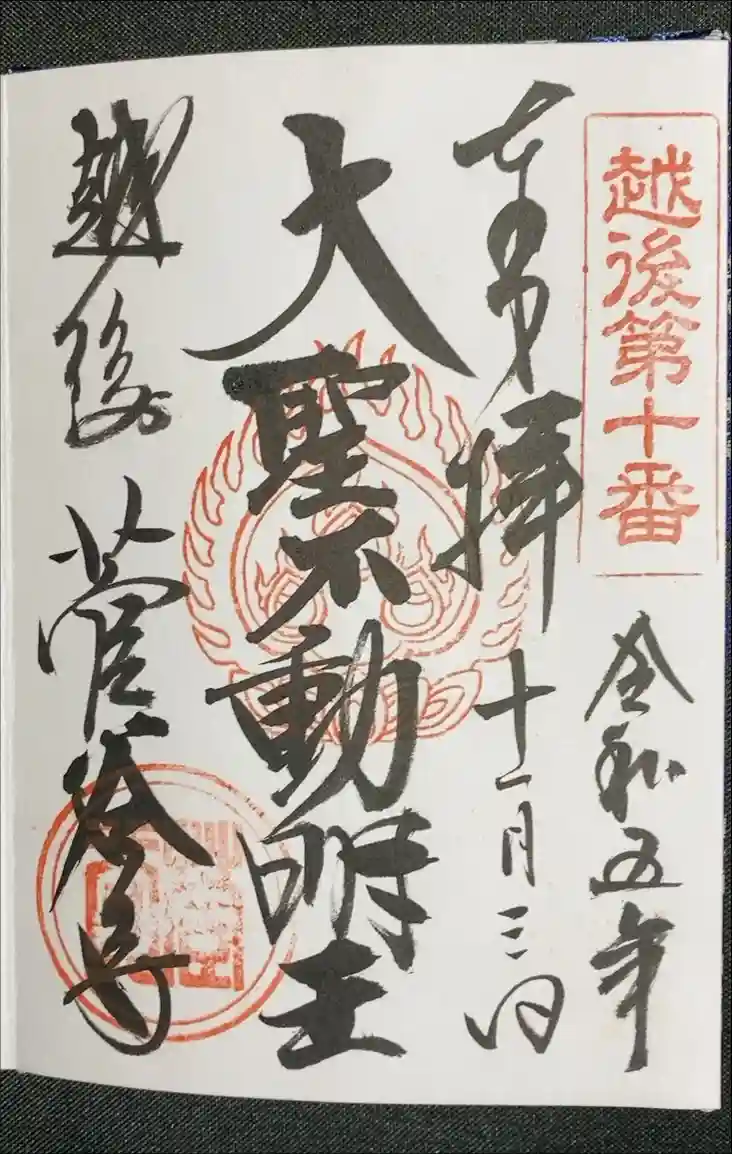 越後第十番
令和五年
奉拝 十一月三日
大聖不動明王
越後 菅谷寺